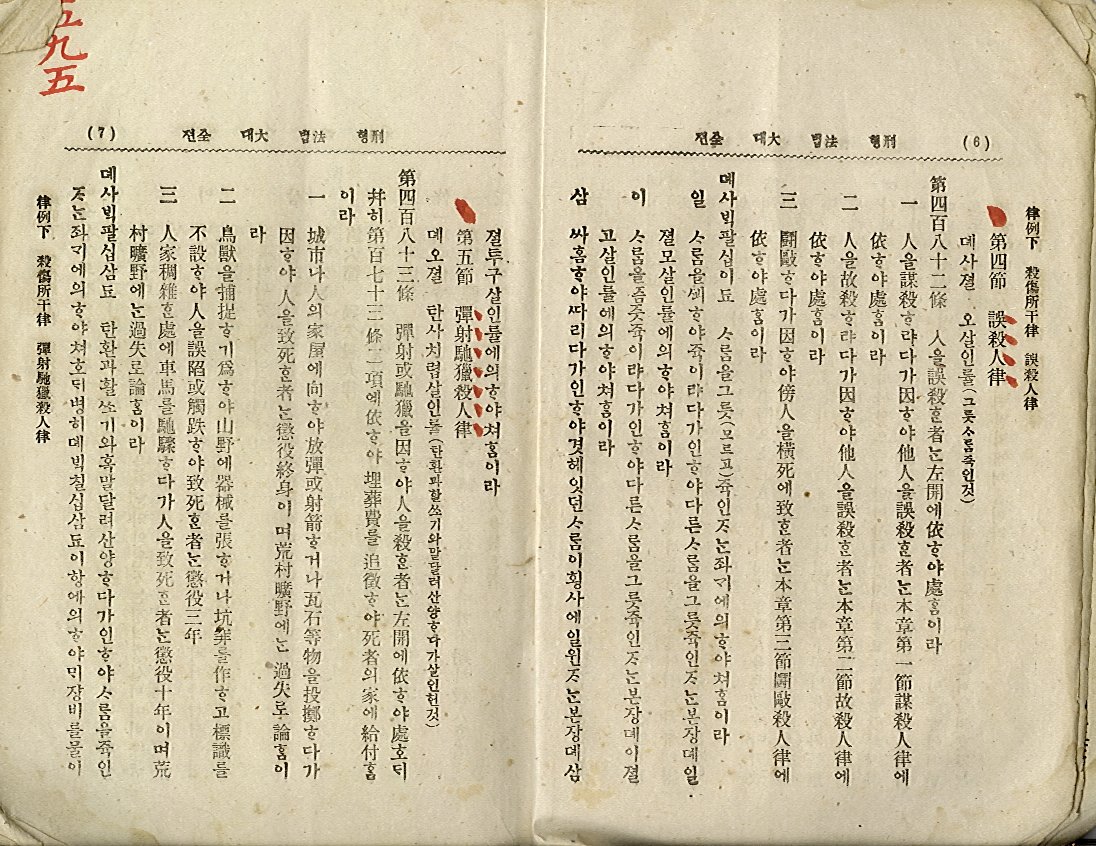 (6) 刑형 法법 大대 全전
律例下 殺傷所干律 誤殺人律
第四節 誤殺人律
뎨사졀 오살인률(그릇ᄉᆞᄅᆞᆷ쥭인것)
第四百八十二條 人을誤殺ᄒᆞᆫ者ᄂᆞᆫ左開에依ᄒᆞ야處ᄒᆞᆷ이라
一 人을謀殺ᄒᆞ랴다가因ᄒᆞ야他人을誤殺ᄒᆞᆫ者ᄂᆞᆫ本章第一節謀殺人律에
依ᄒᆞ야處ᄒᆞᆷ이라
二 人을故殺ᄒᆞ랴다가因ᄒᆞ야他人을誤殺ᄒᆞᆫ者ᄂᆞᆫ本章第二節故殺人律에
依ᄒᆞ야處ᄒᆞᆷ이라
三 鬪毆ᄒᆞ다가因ᄒᆞ야傍人을橫死에致ᄒᆞᆫ者ᄂᆞᆫ本章第三節鬪毆殺人律에
依ᄒᆞ야處ᄒᆞᆷ이라
뎨사ᄇᆡᆨ팔십이됴 ᄉᆞᄅᆞᆷ을그릇(모르고)쥭인ᄌᆞᄂᆞᆫ좌ᄀᆡ에의ᄒᆞ야쳐ᄒᆞᆷ이라
일 ᄉᆞᄅᆞᆷ을ᄭᅬᄒᆞ야쥭이랴다가인ᄒᆞ야다른ᄉᆞᄅᆞᆷ을그릇쥭인ᄌᆞᄂᆞᆫ본장뎨일
졀모살인률에의ᄒᆞ야쳐ᄒᆞᆷ이라
이 ᄉᆞᄅᆞᆷ을즘줏쥭이랴다가인ᄒᆞ야다른ᄉᆞᄅᆞᆷ을그릇쥭인ᄌᆞᄂᆞᆫ본장뎨이졀
고살인률에의ᄒᆞ야쳐ᄒᆞᆷ이라
삼 싸홈ᄒᆞ야ᄯᅡ리다가인ᄒᆞ야겻헤잇던ᄉᆞᄅᆞᆷ이횡사에일윈ᄌᆞᄂᆞᆫ본장뎨삼
五九五
(7) 刑형 法법 大대 全전
졀투구살인률에의ᄒᆞ야쳐ᄒᆞᆷ이라
第五節 彈射馳獵殺人律
뎨오졀 탄사치렵살인률(탄환과활쏘기와말달려산양ᄒᆞ다가살인헌것)
第四百八十三條 彈射或馳獵을因ᄒᆞ야人을殺ᄒᆞᆫ者ᄂᆞᆫ左開에依ᄒᆞ야處호ᄃᆡ
幷히第百七十三條二項에依ᄒᆞ야埋葬費를追徵ᄒᆞ야死者의家에給付ᄒᆞᆷ
이라
一 城市나人의家屋에向ᄒᆞ야放彈或射箭ᄒᆞ거나瓦石等物을投擲ᄒᆞ다가
因ᄒᆞ야人을致死ᄒᆞᆫ者ᄂᆞᆫ懲役終身이며荒村曠野에ᄂᆞᆫ過失로論ᄒᆞᆷ이
라
二 鳥獸을捕捉ᄒᆞ기爲ᄒᆞ야山野에器械를張ᄒᆞ거나坑穽를作ᄒᆞ고標識를
不設ᄒᆞ야人을誤陷或觸跌ᄒᆞ야致死ᄒᆞᆫ者ᄂᆞᆫ懲役三年
三 人家稠雜ᄒᆞᆫ處에車馬를馳驟ᄒᆞ다가人을致死ᄒᆞᆫ者ᄂᆞᆫ懲役十年이며荒
村曠野에ᄂᆞᆫ過失로論ᄒᆞᆷ이라
뎨사ᄇᆡᆨ팔십삼됴 탄환과활쏘기와혹말달려산양ᄒᆞ다가인ᄒᆞ야ᄉᆞᄅᆞᆷ을쥭인
ᄌᆞᄂᆞᆫ좌ᄀᆡ에의ᄒᆞ야쳐호ᄃᆡ병히뎨ᄇᆡᆨ칠십삼됴이항에의ᄒᆞ야ᄆᆡ장비를물이
律例下 殺傷所干律 彈射馳獵殺人律